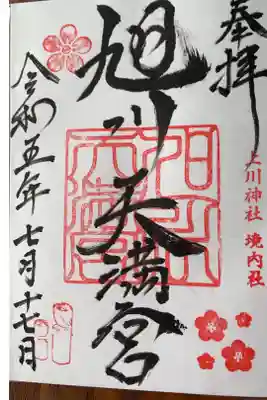 奉拝
上川神社 境内社
旭川天満宮
令和五年七月十七日